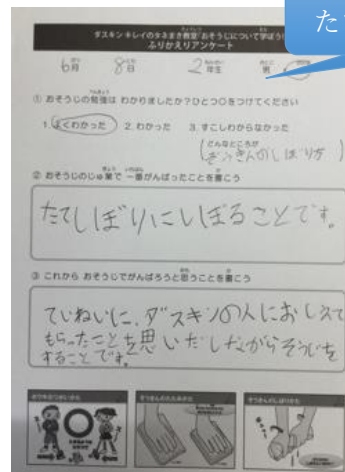 た
ダスキン キレイのタネまき教室「おそうじについて学ぼう
ふりかえりアンケート
6月 8日 2年生 男
① おそうじの勉強は わかりましたか？ひとつ○をつけてください
1. よくわかった 2. わかった 3. すこしわからなかった
(どんなところが
ぞうきんがしぼり方)
② おそうじのじゅ業で 一番がんばったことを書こう
たてしぼりにしぼることです。
③ これから おそうじでがんばろうと思うことを書こう
ていねいに、ダスキンの人におしえて
もらったことを思いだしながらそうじを
することです。
ぞうきんのしぼりかた